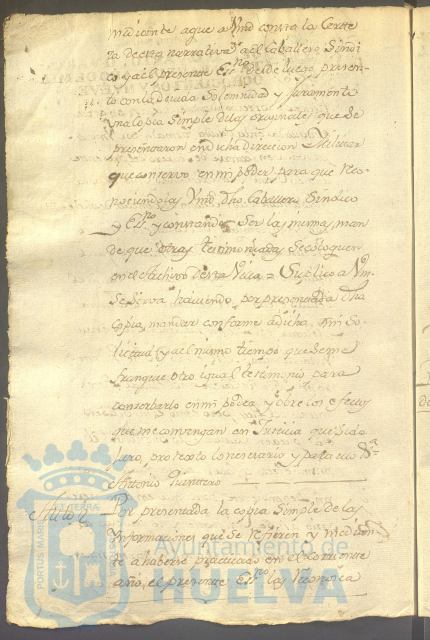 mediante a que a Vmd consta la Certe
za de esta narrativa, y a el Caballero Sindi
co y a el presente Essno desde luego presen
to con la devida solemnidad y Juramento
una Copia Simple de las originales que se
presentaron en dicha direccion Militar
que conservo en mi poder para que reco
nociendolas Vmd. dho. Caballero Sindico
y Essno y constando ser las mismas, man
de que otras testimoniadas se coloquen
en el Archivo de esta Villa = Suplico a Vm.
se sirva haviendo por presentada dha
Copia, mandar conforme a dicha mi so
licitud y a el mismo tiempo que se me
franquee otro igual testimonio para
conservarlo en mi poder, y obre los efectos
que me convengan en Justicia que pido
juro, protexto lo necesario y para ello &a
Antonio Quintero
Auto Por presentada la copia simple de las
Ynformaciones que se refieren y median
te a haverse practicado en el corriente
año, el presente Essno las reconosca
PORTUS MARIS TERRAE
Ayuntamiento de
HUELVA